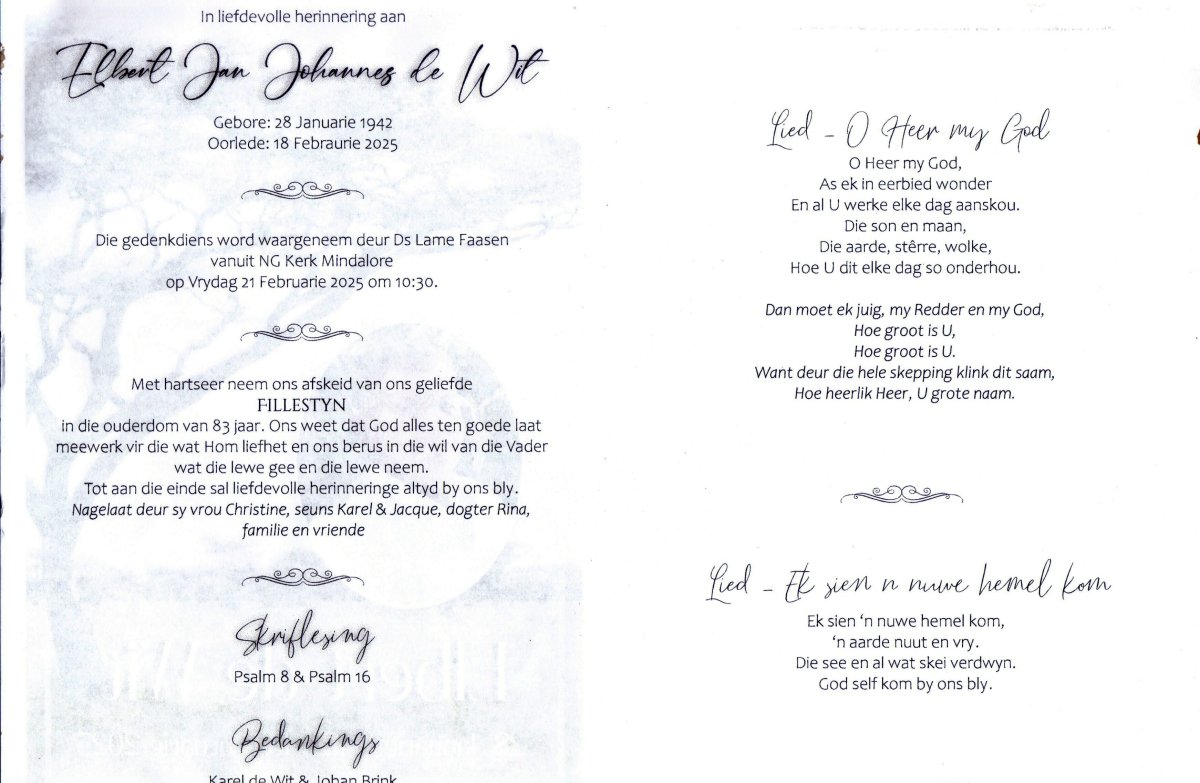 In liefdevolle herinnering aan
Elbert Jan Johannes de Wit
Gebore: 28 Januarie 1942
Oorlede: 18 Febraurie 2025
Die gedenkdiens word waargeneem deur Ds Lame Faasen
vanuit NG Kerk Mindalore
op Vrydag 21 Februarie 2025 om 10:30.
Met hartseer neem ons afskeid van ons geliefde
FILLESTYN
in die ouderdom van 83 jaar. Ons weet dat God alles ten goede laat
meewerk vir die wat Hom liefhet en ons berus in die wil van die Vader
wat die lewe gee en die lewe neem.
Tot aan die einde sal liefdevolle herinneringe altyd by ons bly.
Nagelaat deur sy vrou Christine, seuns Karel & Jacque, dogter Rina,
familie en vriende
Skriflesing
Psalm 8 & Psalm 16
Bedankings
Karel de Wit & Johan Brink
Lied - O Heer my God
O Heer my God,
As ek in eerbied wonder
En al U werke elke dag aanskou.
Die son en maan,
Die aarde, stêrre, wolke,
Hoe U dit elke dag so onderhou.
Dan moet ek juig, my Redder en my God,
Hoe groot is U,
Hoe groot is U.
Want deur die hele skepping klink dit saam,
Hoe heerlik Heer, U grote naam.
Lied - Ek sien n nuwe hemel kom
Ek sien ‘n nuwe hemel kom,
‘n aarde nuut en vry.
Die see en al wat skei verdwyn.
God self kom by ons bly.